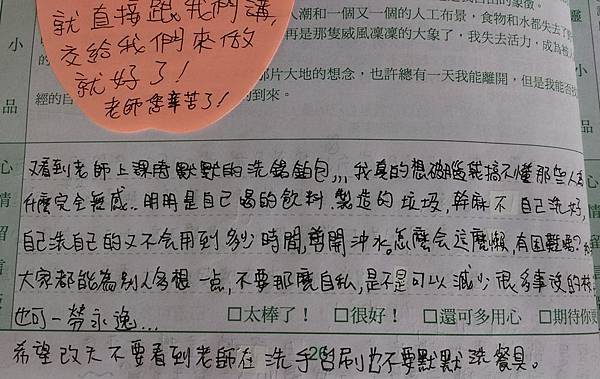 就直接跟我們講,
交給我們來做
就好了!
老師您辛苦了!
小
品
心
情
留
言
人潮和一個又一個的人工布景,食物和水都失去了
再是那隻威風凜凜的大象了,我失去活力,成為
那片大地的想念,也許總有一天我能離開,但是我能否
經的自 的到來。
又看到老師上課時默默的洗鋁鉑包,,,我真的想破腦袋搞不懂那些人為
什麼完全無感..明明是自己喝的飲料.製造的垃圾,幹麻不自己洗好,
自己洗自己的又不会用到多少時間,剪開沖水。怎麼会這麼懶,有困難嗎?
大家都能為別人多想一點,不要那麼自私,是不是可以減少很多事没的
也可一勞永逸...
□太棒了! □很好! □還可多用心 □期待你
希望改天不要看到老師在洗手台刷 不要默默洗餐具。
26